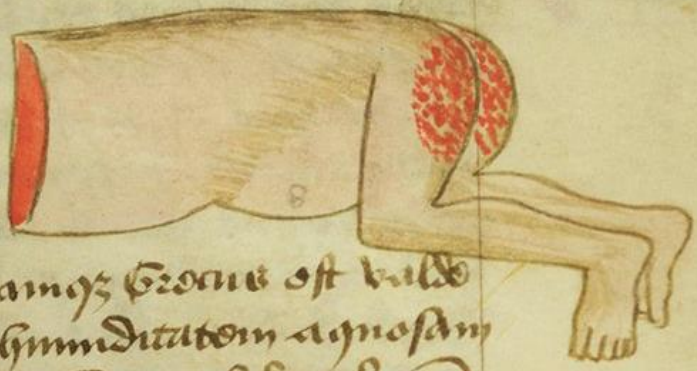 amqꝫ Grocus est valde
humiditatem aquosam